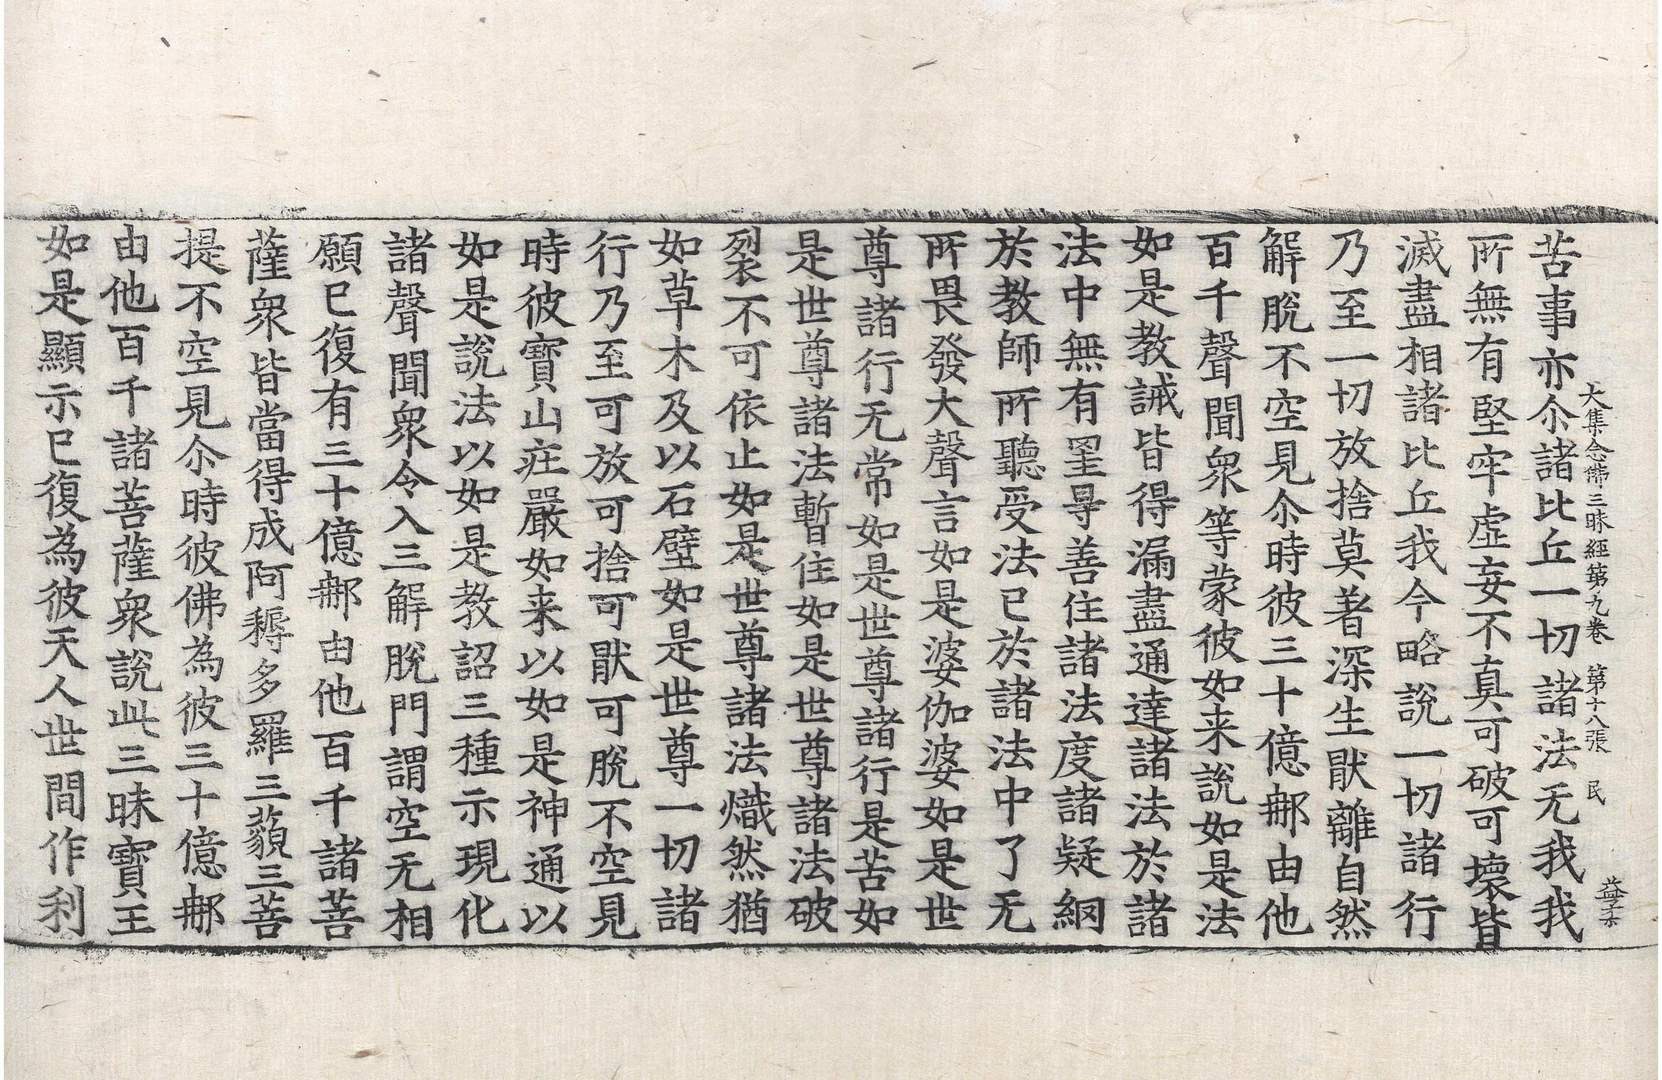 大集念佛三昧經第九卷　第十八張　民
苦事亦尒諸比丘一切諸法无我我
所無有堅牢虛妄不真可破可壞皆
滅盡相諸比丘我今略說一切諸行
乃至一切放捨莫著深生猒離自然
解脫不空見尒時彼三十億郍由他
百千聲聞衆等蒙彼如来說如是法
如是教誡皆得漏盡通達諸法於諸
法中無有罣㝵善住諸法度諸疑網
於教師所聽受法已於諸法中了无
所畏發大聲言如是婆伽婆如是世
尊諸行无常如是世尊諸行是苦如
是世尊諸法暫住如是世尊諸法破
裂不可依止如是世尊諸法熾然猶
如草木及以石壁如是世尊一切諸
行乃至可放可捨可猒可脫不空見
時彼寶山莊嚴如来以如是神通以
如是說法以如是教詔三種示現化
諸聲聞衆令入三解脫門謂空无相
願已復有三十億郍由他百千諸菩
薩衆皆當得成阿耨多羅三藐三菩
提不空見尒時彼佛為彼三十億郍
由他百千諸菩薩衆說此三昧寶王
如是顯示已復為彼天人世間作利